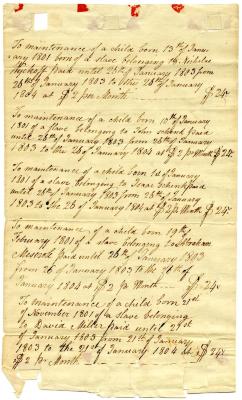 To maintenance of a child born 13th of Janu-
ary 1801 born of a slave belonging to Nicholas
Wyckoff paid until 26th of January 1803 from
26th of January 1803 to the 26th of January
1804 at $2 pr Month $24
To maintenance of a child born 10th of January
1801 of a slave belonging to John Schenk paid
until 26th of January 1803 from 26th of January
1803 to the 26 of January 1804 at $2 pr Month $24
To maintenance of a child born of January
1801 of a slave belonging to Isaac Schenk paid
until 26th of January 1803 from 26th of January
1803 to the 26 of January 1804 at $2 pr Month $24
To maintenance of a child born 19th of
February 1801 of a slave belonging to Abraham
paid until 26th of January 1803
from 26 of January 1803 to the 26th of
January 1804 at $2 pr Month $24
To maintenance of a child born 21st
of November 1801 of a slave belonging
to David Miller paid until 21st
of January 1803 from 21st of January
1803 to the 21st of January 1804 at $24
$2 pr Month